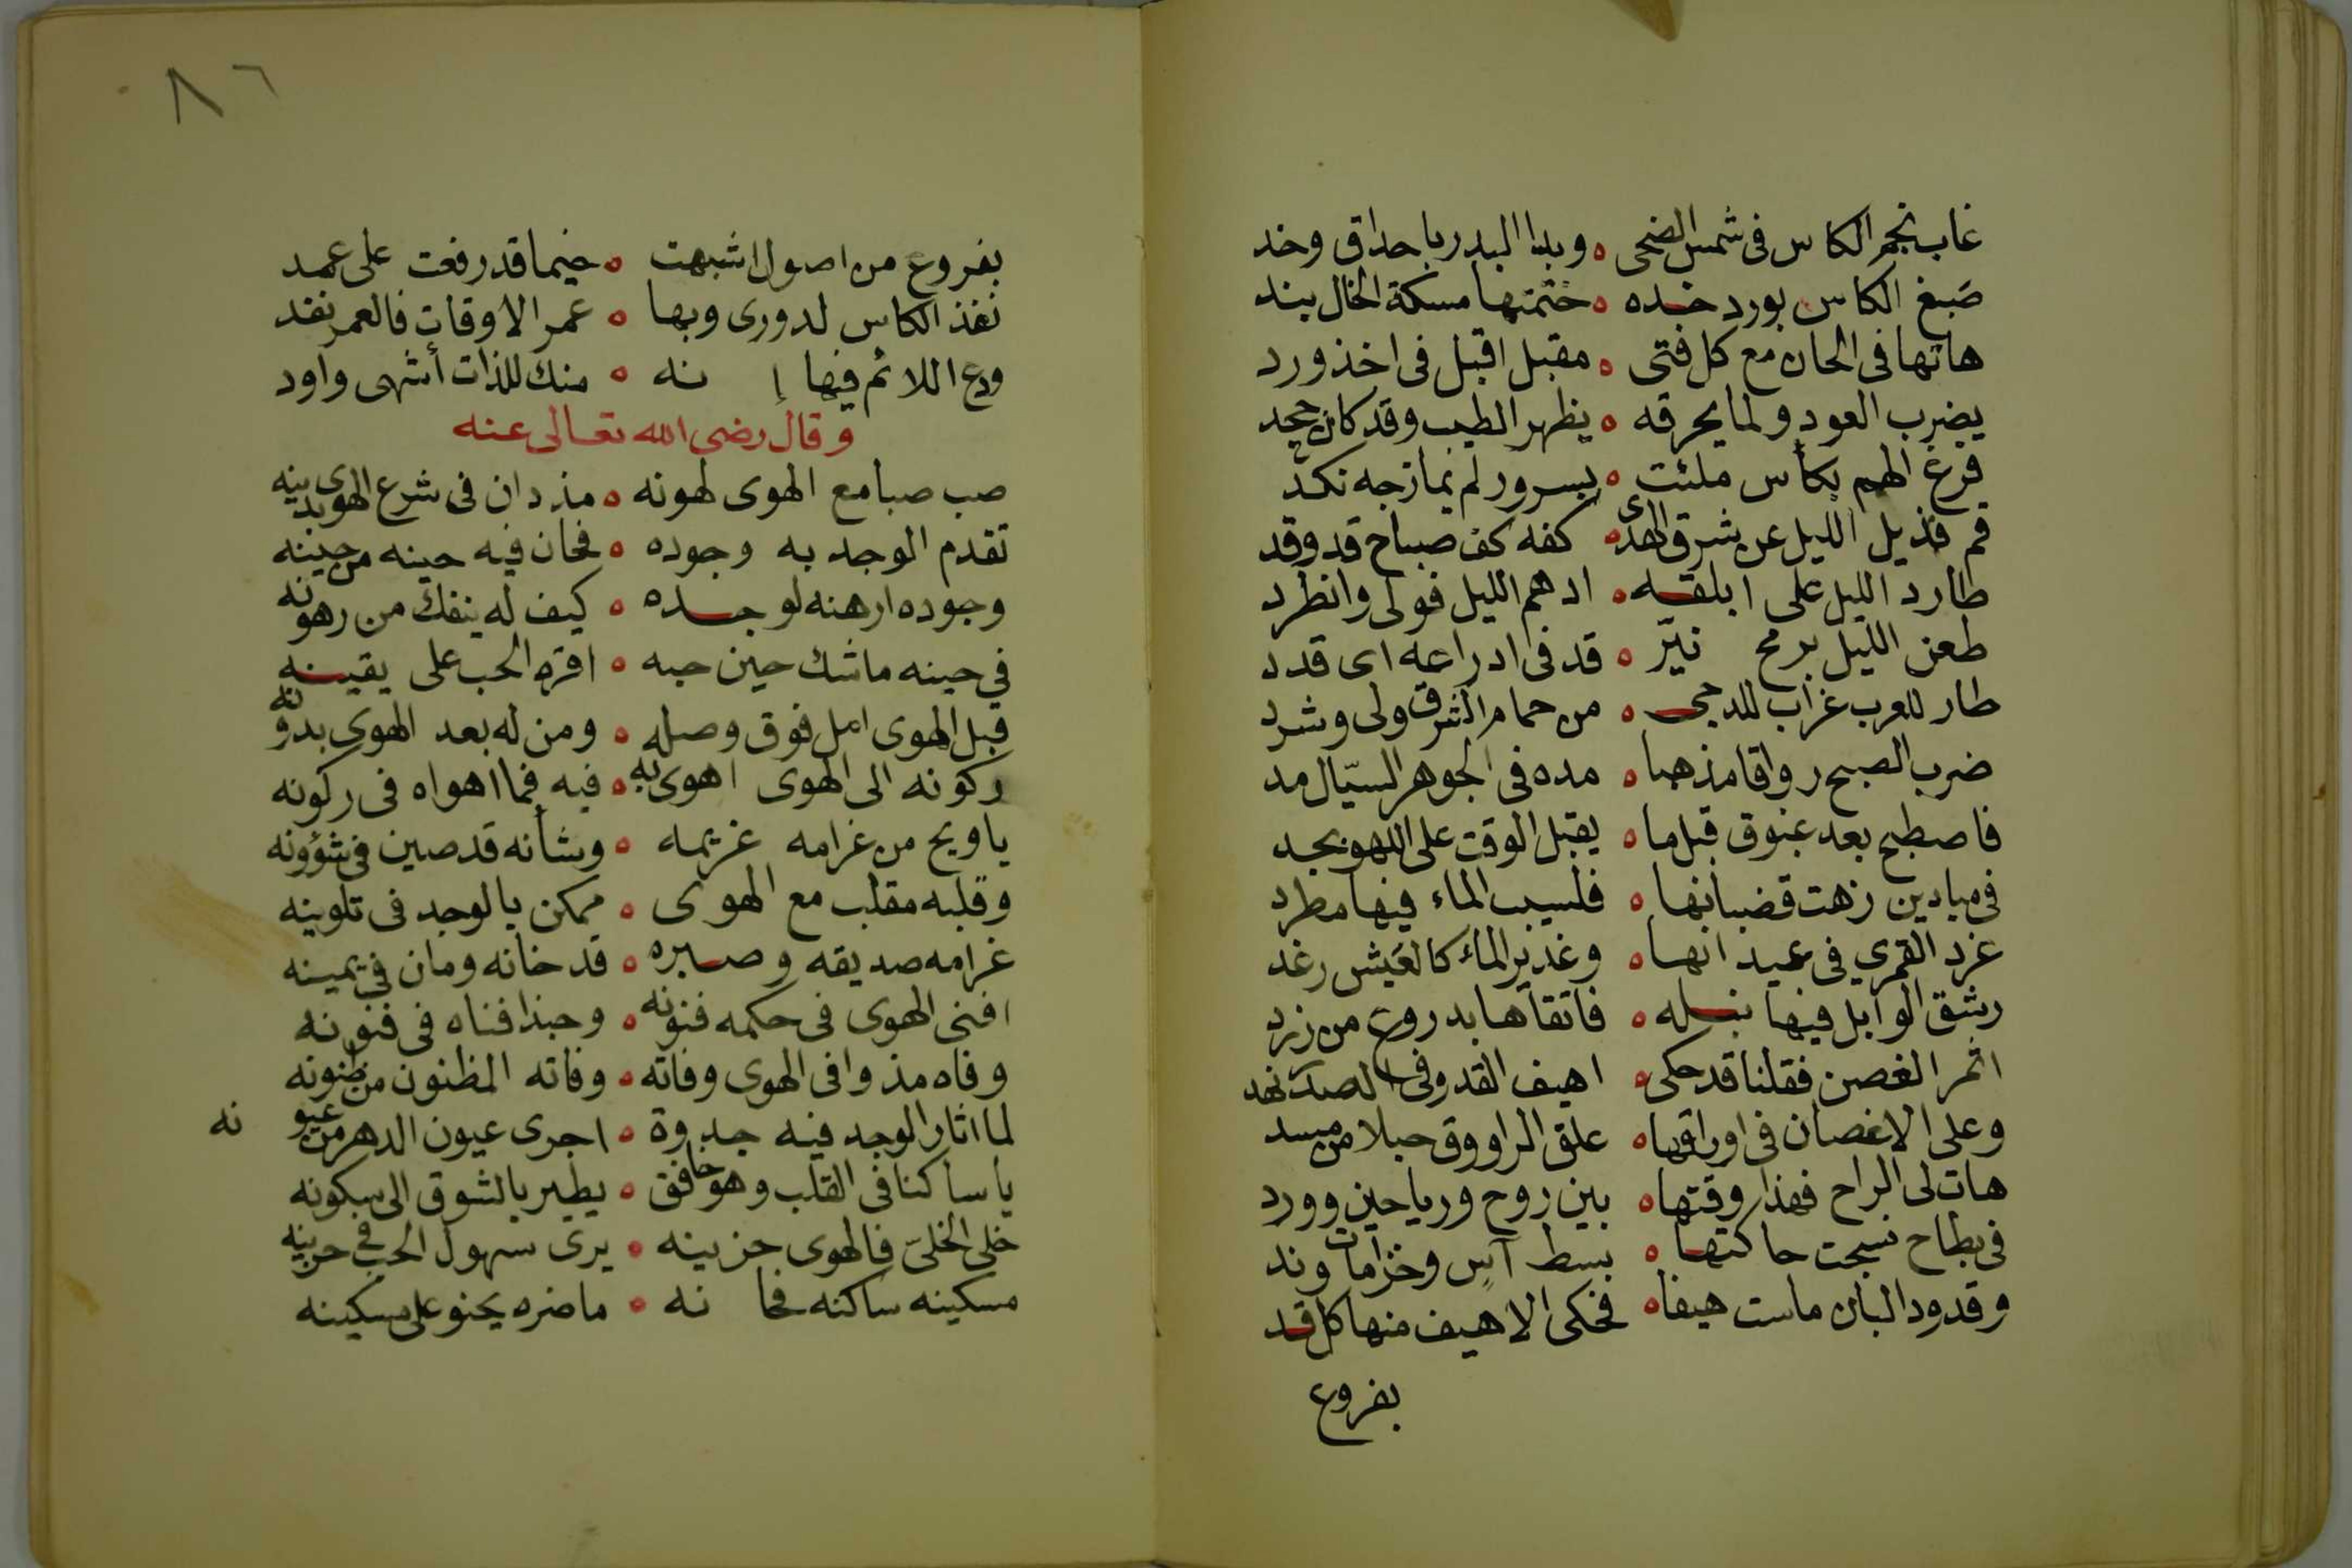 غاب نجم الكاس فى شمس الضحى ه وبدا البدر باحداق وخد
صَبغ الكاس بورد خده ه ختمتها مسكة الخال بند
هاتها فى الحان مع كل فتى ه مقبل اقبل فى اخذ ورد
يضرب العود ولما يحرقه ه يظهر الطيب وقد كان جحد
فرغ الهم بكأس ملئت ه بسرور لم يمازجه نكد
قم فذيل الليل عن شرق الهدى ه كفه كف صباح قد وقد
طارد الليل على ابلقه ه ادهم الليل فولى وانطرد
طعن الليل برمح نيّر ه قد فى ادراعه اى قدد
طار للغرب غراب للدجى ه من حمام الشرق ولى وشرد
ضرب الصبح رواقا مذهبا ه مده فى الجوهر السيّال مد
فاصطبح بعد غبوق قبل ما ه يقبل الوقت على اللهو بجد
فى ميادين زهت قضبانها ه فلسيب الماء فيها مطرد
غرد القمرى فى عيدانها ه وغدير الماء كالعَيش رغد
رشق الوابل فيها نبله ه فاتقاها بدروع من زرد
اثمر الغصن فقلنا قد حكى ه اهيف القد وفى الصدر نهد
وعلى الاغصان فى اوراقها ه علق الراووق حبلا من مسد
هات لى الراح فهذا وقتها ه بين روح ورياحين وورد
فى بطاح نسجت حاكتها ه بسط آس وخزامات وند
وقدود البان ماست هيفا ه فحكى الاهيف منها كل قد
بفروع
٨٦
بفروع من اصول اشبهت ه خيما قد رفعت على عمد
نفذ الكاس لدورى وبها ه عمر الاوقات فالعمر نفد
ودع اللائم فيها إ نه ه منك للذات أشهى واود
وقال رضى الله تعالى عنه
صب صبا مع الهوى لهونه ه مذ دان فى شرع الهوى بدينه
تقدم الوجد به وجوده ه فحان فيه حينه من حينه
وجوده ارهنه لوجده ه كيف له ينفك من رهونه
في حينه ما شك حين حبه ه اقره الحب على يقينه
قبل الهوى امل فوق وصله ه ومن له بعد الهوى بدونه
ركونه الى الهوى اهوى به ه فيه فما اهواه فى ركونه
يا ويح من غرامه غريمه ه وشأنه قد صين فى شؤونه
وقلبه مقلب مع الهوى ه ممكن بالوجد فى تلوينه
غرامه صديقه وصبره ه قد خانه ومان في يمينه
افنى الهوى فى حكمه فنونه ه وحبذا فناه فى فنونه
وفاه مذ وافى الهوى وفاته ه وفاته المظنون من ظنونه
لما اثار الوجد فيه جدوة ه اجرى عيون الدهر من عيو نه
يا ساكنا فى القلب وهو خافق ه يطير بالشوق الى سكونه
خلى الخلىّ فالهوى حزينه ه يرى سهول الحب فى حزينه
مسكينه ساكنه فحا نه ه ما ضره يحنو على مسكينه